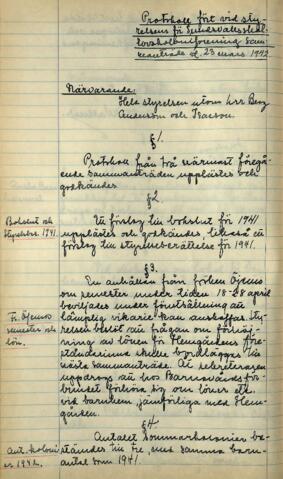 Protokoll fört vid sty-
relsens för Sundsvalls
sam-
manträde d. 23 mars 1942.
Närvarande:
Hela styrelsen utom hrr Berg
Anderson och Isacson.
§ 1.
Protokoll från två närmast föregå-
ende sammanträden upplästes och
godkändes.
§ 2
Bokslut och
styrelseber. 1941.
Ett förslag till bokslut för 1941
upplästes och godkändes liksom ett
förslag till styrelseberättelse för 1941.
§ 3.
Fr. Öjemos
semester och
lön.
En anhållan från fröken Öjemo
om semester under tiden 18-28 april
beviljades under förutsättning att
lämplig vikarie kan anskaffas. Sty-
relsen beslöt att frågan om förhöj-
ning av lönen för Hemgårdens före-
ståndarinna skulle bordläggas till
nästa sammanträde. Åt sekreteraren
uppdrogs att hos Barnavårdsför-
bundet förhöra sig om löner etc.
vid barnhem jämförliga med Hem-
gården.
§ 4
Ant. koloni-
er 1942.
Antalet sommarkolonier be-
stämdes till tre med samma barn-
antal som 1941.